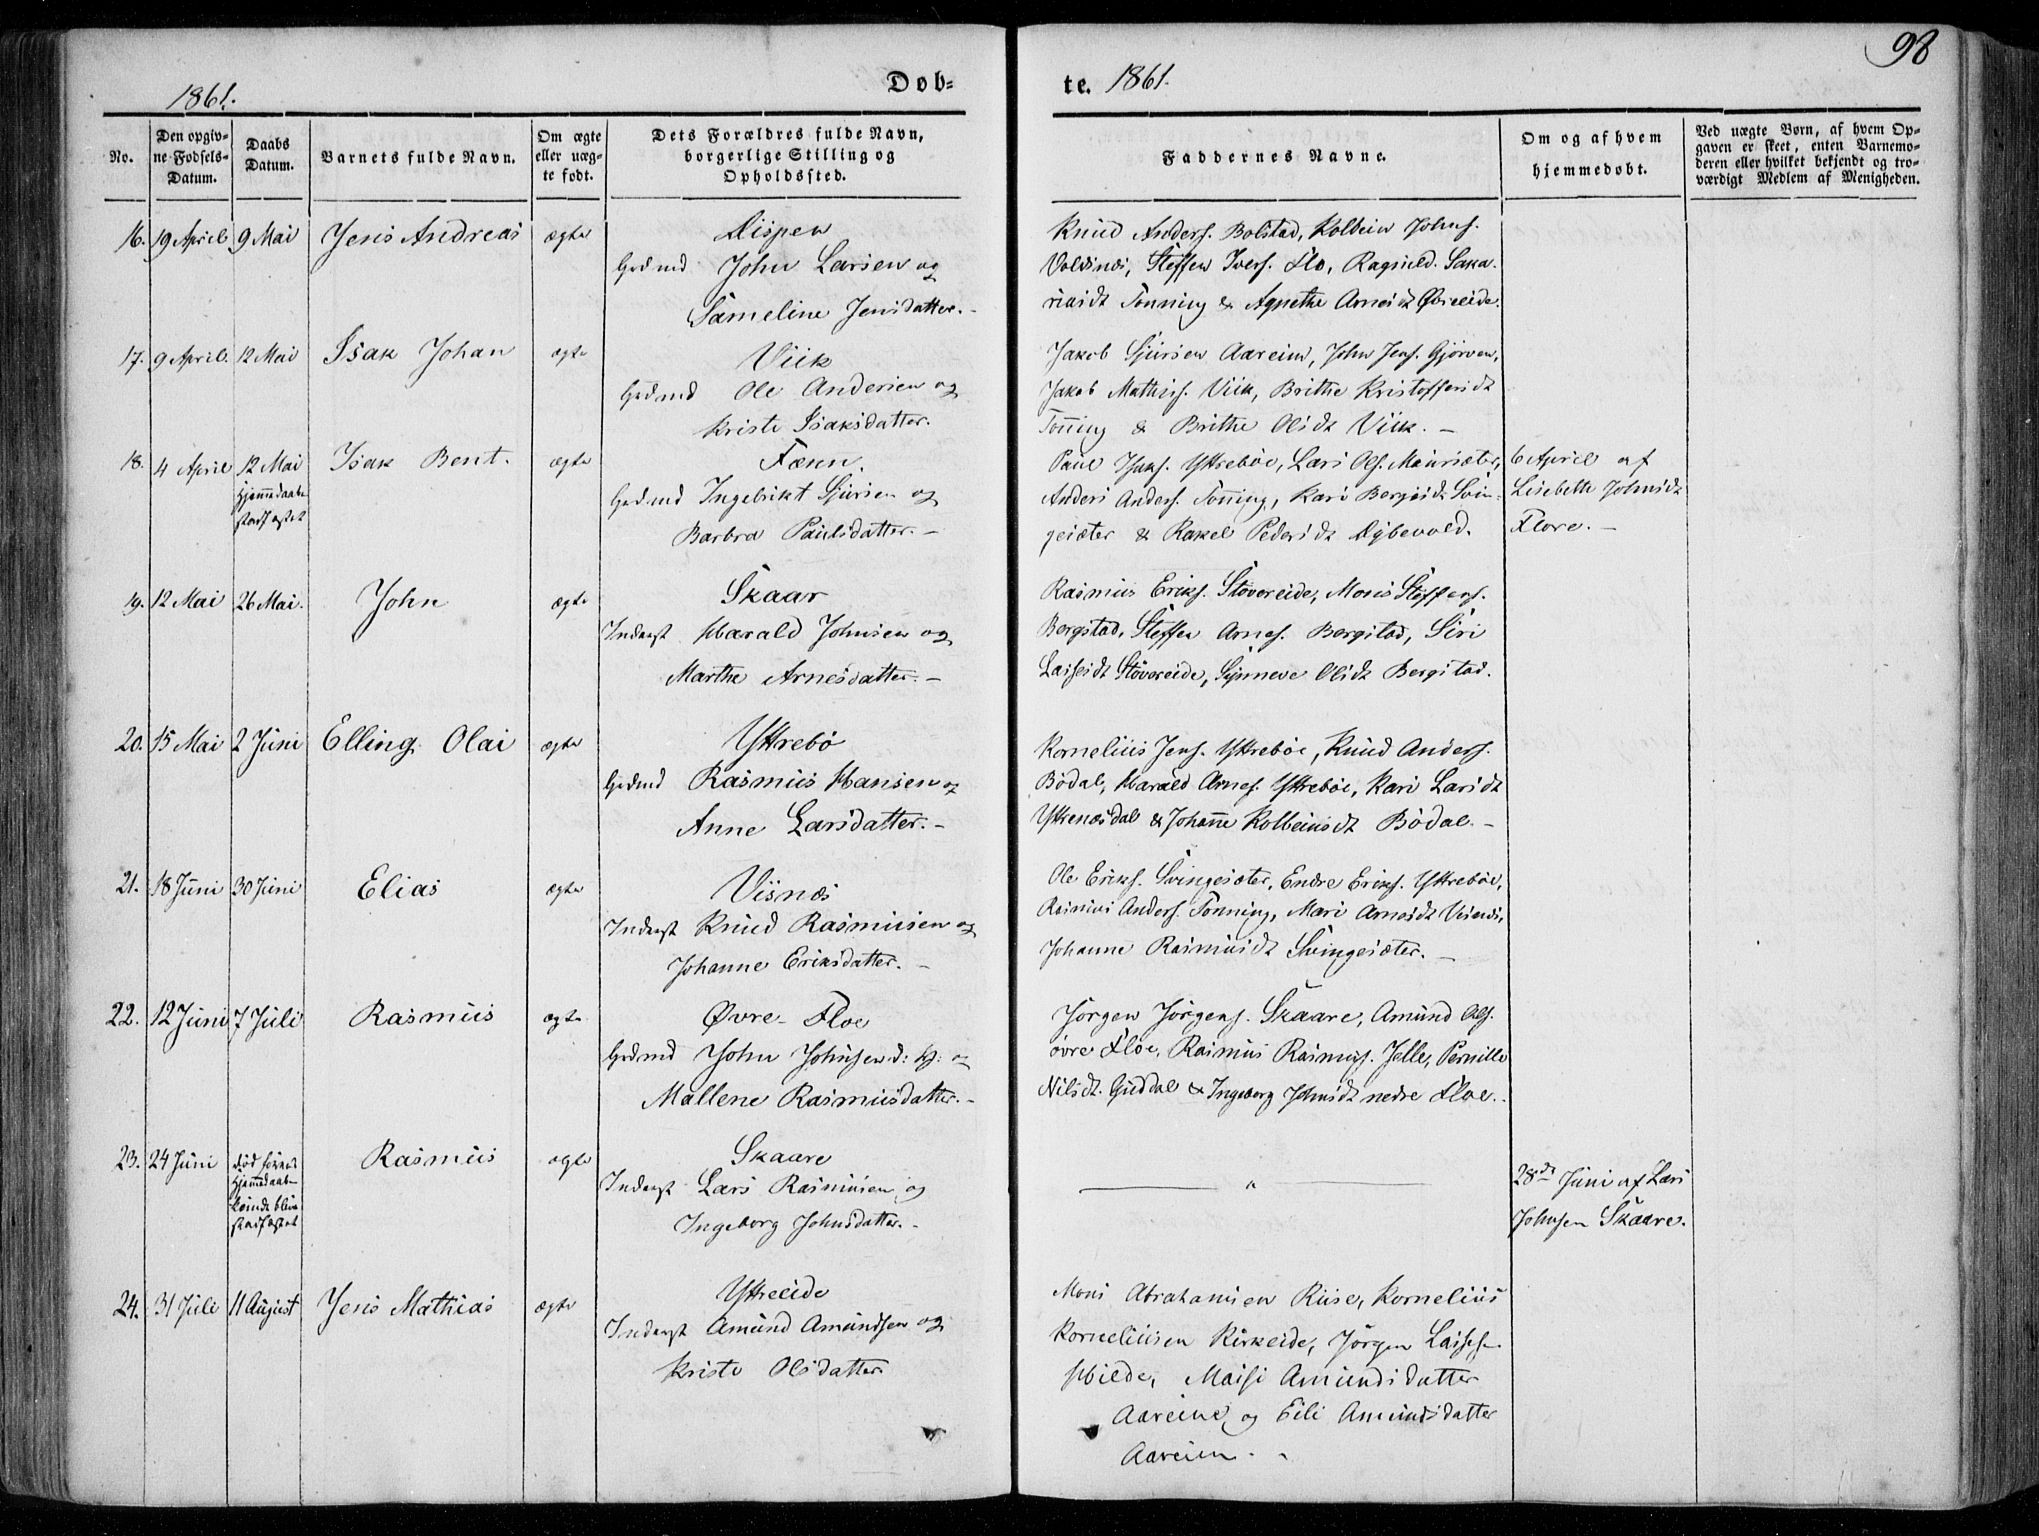 98
1861.
Døb-
te. 1861.
No.
Den opgiv-
ne Fødsels-
Datum.
Daabs
Datum.
Barnets fulde Navn.
Om ægte
eller uæg-
te født.
Dets Forældres fulde Navn,
borgerlige Stilling og
Opholdssted.
Faddernes Navne.
Om og af hvem
hjemmedøbt.
Ved uægte Børn, af hvem Op-
gaven er skeet, enten Barnemo-
deren eller hvilket bekjendt og tro-
værdigt Medlem af Menigheden.
16. 19 April 9 Mai Jens Andreas ægte
Lispen
Grdmd John Larsen og
Sameline Jensdatter.-
Knud Anders. Bolstad, Kolbein Johns.
Voldsnæs, Steffen Ivers. Flo, Ragnild Saka-
riasdt Tonning & Agnethe Arnesdt Øvreeide.
17. 9 April. 12 Mai Isak Johan ægte
Viik
Grdmd Ole Andersen og
Kristi Isaksdatter.
Jakob Sjursen Aareim, John Jens. Gjørven,
Jakob Mathiss. Viik, Brithe Kristoffersdt
Tonning & Brithe Olsdt Viik. -
18. 4 April 12 Mai Isak Bent. ægte
Hjemmedaaben
stadfæstet
Fænn.
Grdmd Ingebrikt Sjursen og
Barbra Paulsdatter. -
Paul Isaks. Yttrebøe, Lars Ols. Mæursæter,
Anders Anders. Tonning, Kari Bergesdt Svin-
gesæter & Rakel Pedersdt Dybevold.
6 April af
Lisebeth Johnsdt
Flore. -
19. 12 Mai 26 Mai. John ægte
Skaar
Inderst Harald Johnsen og
Marthe Arnesdatter. -
Rasmus Eriks. Støvereide, Mons Steffens.
Bergstad, Steffen Arnes. Bergstad, Siri
Lassesdt Støvereide, Synneve Olsdt Bergstad.
20. 15 Mai 2 Juni Elling Olai ægte
Yttrebø
Grdmd Rasmus Hansen og
Anne Larsdatter. -
Kornelius Jens. Yttrebøe, Knud Anders.
Bødal, Harald Arnes. Yttrebøe, Kari Larsdt
Yttrenæsdal & Johanne Kolbeinsdt Bødal. -
21. 18 Juni 30 Juni Elias ægte
Visnæs
Inderst Knud Rasmusen og
Johanne Eriksdatter. -
Ole Eriks. Svingesæter, Endre Eriks. Yttrebøe,
Rasmus Anders. Tonning, Mari Arnesdt Visnæs,
Johanne Rasmusdt Svingesæter. -
22. 12 Juni 7 Juli Rasmus ægte
Øvre Floe
Grdmd John Johnsen d: y: og
Mallene Rasmusdatter. -
Jørgen Jørgens. Skaare, Amund Ols.
øvre Floe, Rasmus Rasmuss. Jelle, Pernille
Nilsdt. Guddal & Ingeborg Johnsdt nedre Floe.
23. 24 Juni Rasmus ægte
død førend
Hjemmedaaben
kunde blive
stadfæstet
Skaare
Inderst Lars Rasmusen og
Ingeborg Johnsdatter. -
"
28de Juni af Lars
Johnsen Skaare.
24. 31 Juli 11 August Jens Mathias ægte
Yttreeide
Inderst Amund Amundsen og
Kristi Olsdatter
Mons Abrahamsen Riise, Kornelius
Korneliusen Kirkeide, Jørgen Lasses.
Hilde, Maisi Amundsdatter
Aareim, og Eili Amundsdatter
Aareim. -